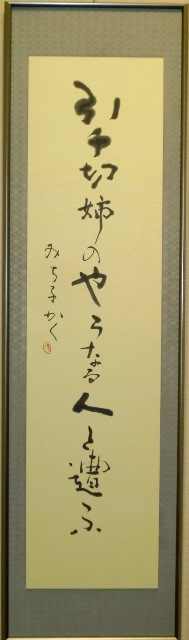 引千切姉のやうなる人と遭ふ
みち子かく